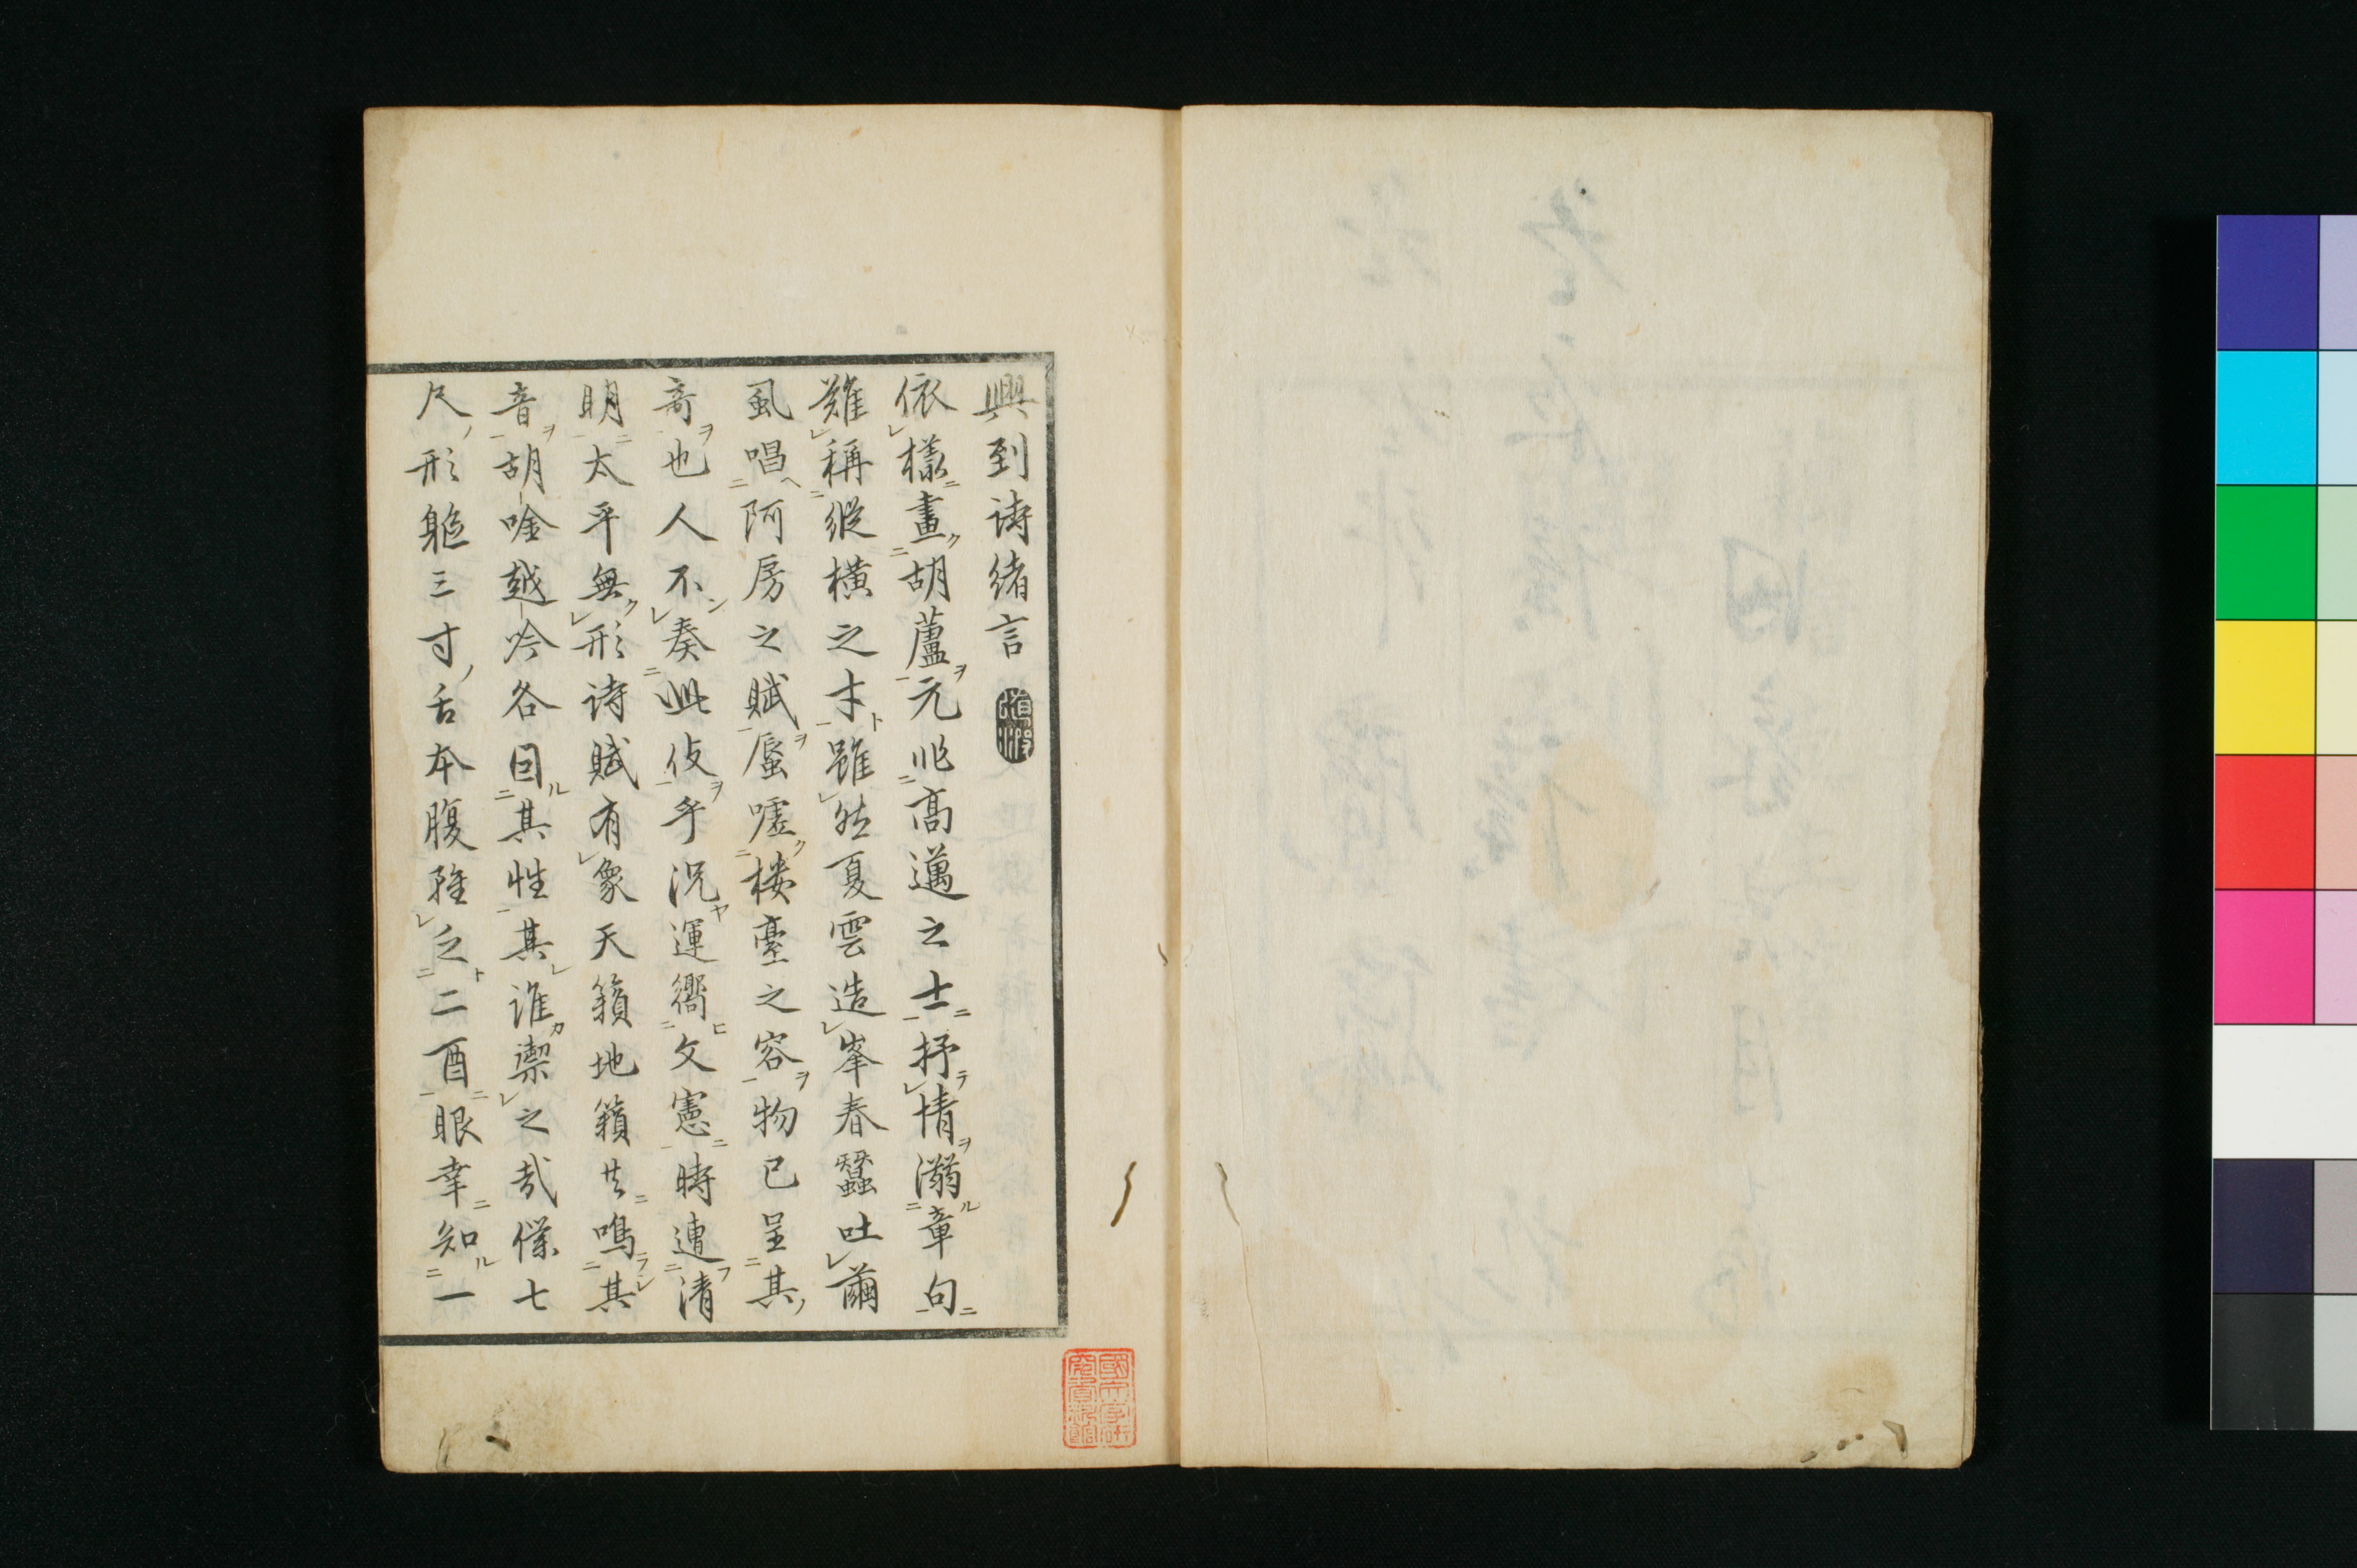 興到詩緒言
依樣畫胡蘆元非高邁之士抒情溺章句
難稱縱橫之才雖然夏雲造峯春蠶吐繭
虱唱阿房之賦蜃嘘樓臺之容物已呈其
奇也人不奏此伎乎況運嚮文憲時連清
明太平無形詩賦有象天籟地籟共鳴其
音胡唫越吟各因其性其誰禦之哉僕七
尺形軀三寸舌本腹雖乏二酉眼幸知一